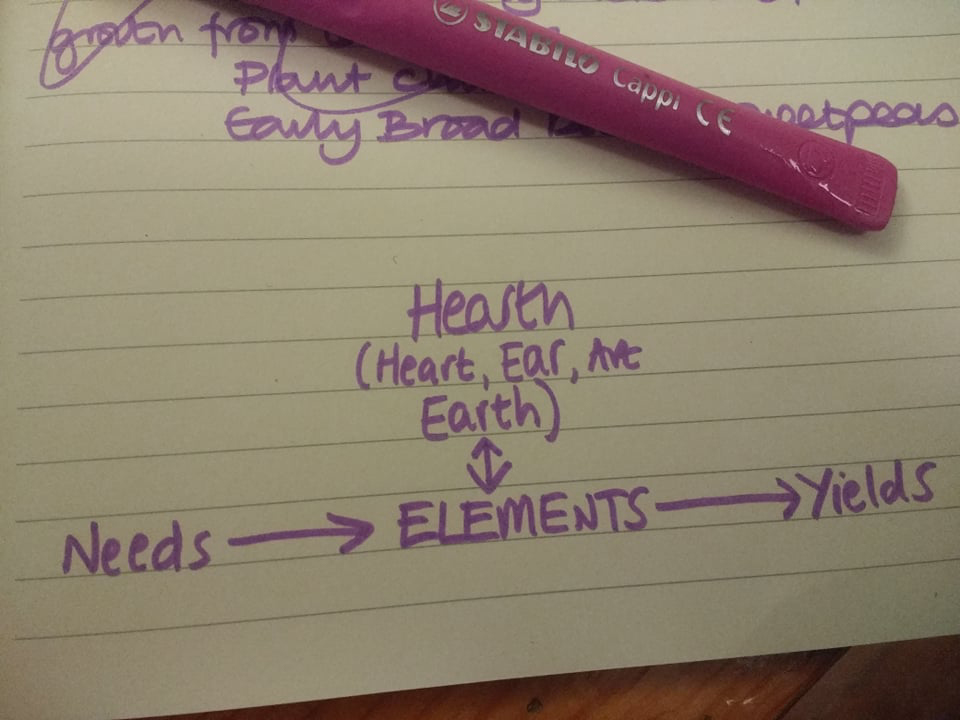 grown from
Plant
Early Broad
sweetpeas
STABILO Cappi CE
Hearth
(Heart, Ear, Art
Earth)
Needs → ELEMENTS → Yields